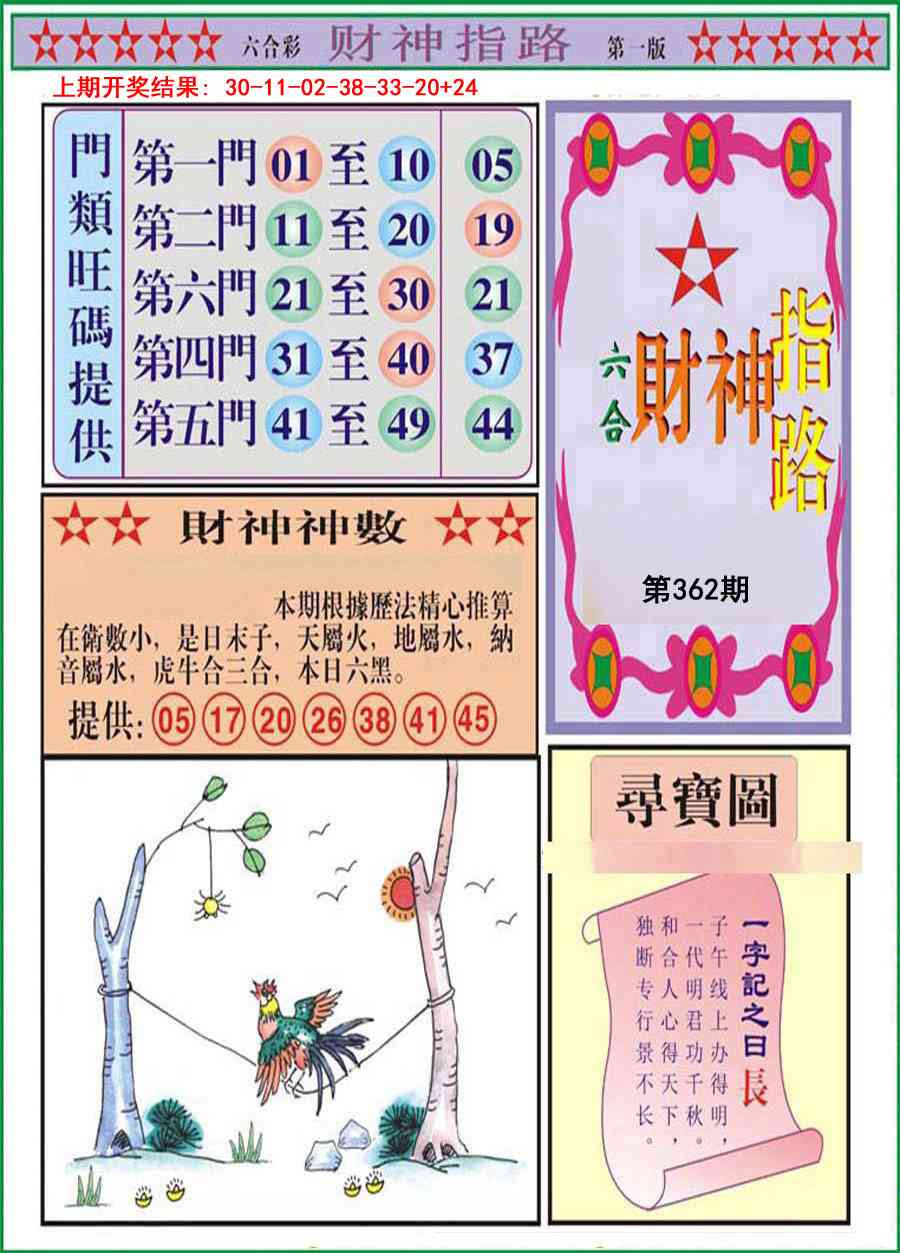 六合彩 财神指路 第一版
上期开奖结果: 30-11-02-38-33-20+24
門類旺碼提供
第一門 01 至 10 05
第二門 11 至 20 19
第六門 21 至 30 21
第四門 31 至 40 37
第五門 41 至 49 44
六合
財神
指路
第362期
財神神數
本期根據歷法精心推算
在衛數小，是日末子，天屬火，地屬水，納
音屬水，虎牛合三合，本日六黑。
提供: 05 17 20 26 38 41 45
尋寶圖
一字記之曰長
子午线上办得明，
一代明君功千秋。
和合人心得天下，
独断专行景不长。